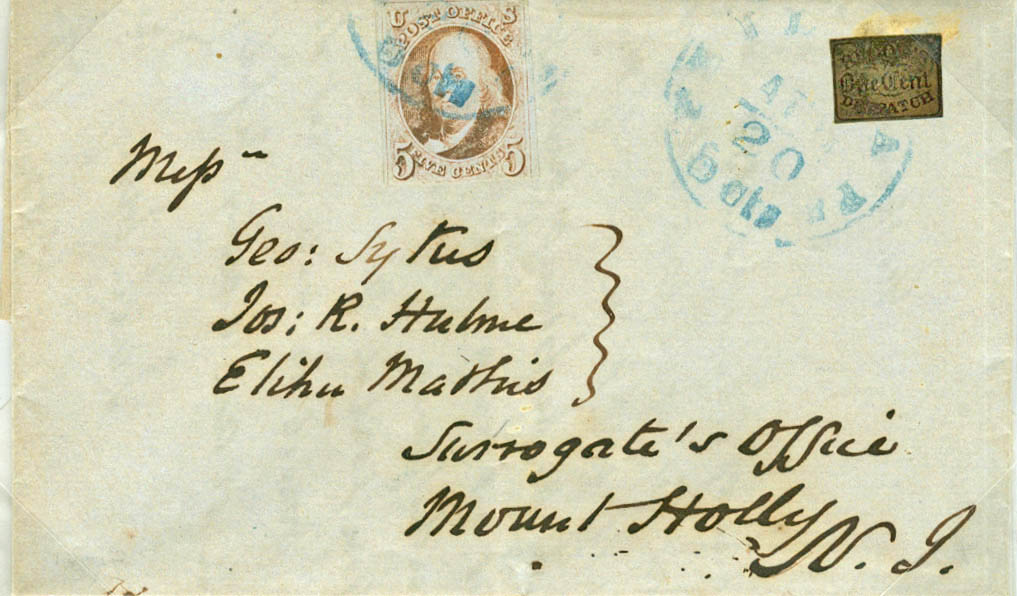 U S
POST OFFICE
FIVE CENTS
5 5
One Cent
DESPATCH
20
5 cts
Mess
Geo: Sykes
Jos: R. Hulme
Elihu Mathis
Surrogate's Office
Mount Holly N. J.